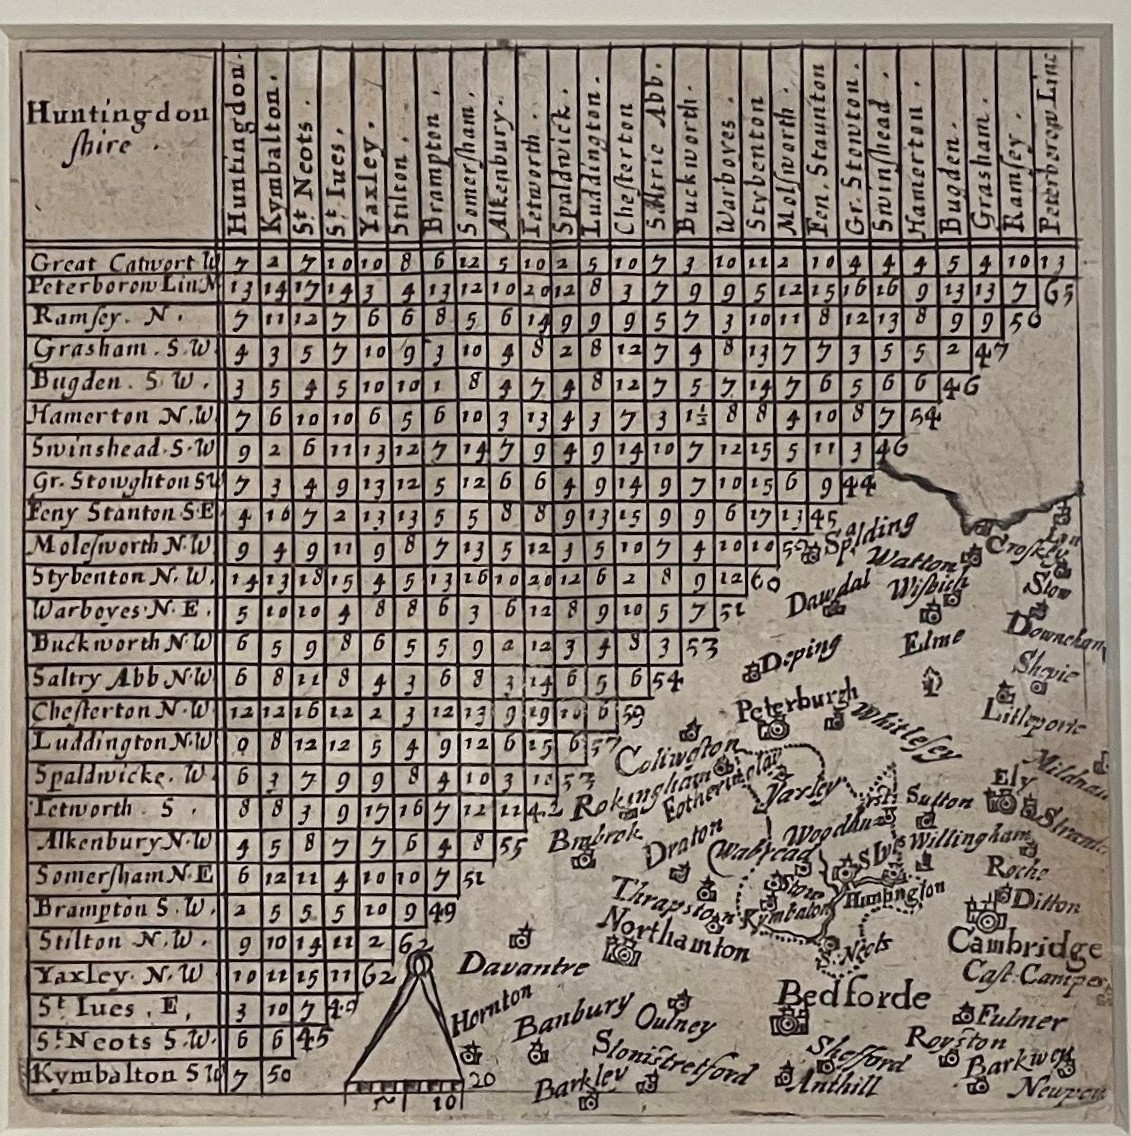 Huntingdon
shire .
Huntingdon.
Kymbalton.
St Neots.
St Iues.
Yaxley.
Stilton.
Brampton.
Somersham.
Alkenbury.
Tetworth.
Spaldwick.
Luddington.
Chesterton
Saltrie Abb.
Buckworth.
Warboves.
Stybenton
Molsworth.
Fen. Staunton
Gr. Stewton.
Swinshead.
Hamerton.
Bugden.
Grasham.
Ramsey.
Peterborow Linc
Great Catwort W 7 2 7 10 10 8 6 12 5 10 2 5 10 7 3 10 11 2 10 4 4 4 5 4 10 13
Peterborow Lin N 13 14 17 14 3 4 13 12 10 20 12 8 3 7 9 9 5 12 15 16 16 9 13 13 7 65
Ramsey. N. 7 11 12 7 6 6 8 5 6 14 9 9 9 5 7 3 10 11 8 12 13 8 9 9 56
Grasham. S.W 4 3 5 7 10 9 3 10 4 8 2 8 12 7 4 8 13 7 7 3 5 5 2 47
Bugden. S W. 3 5 4 5 10 10 1 8 4 7 4 8 12 7 5 7 14 7 6 5 6 6 46
Hamerton N.W 7 6 10 10 6 5 6 10 3 13 4 3 7 3 1½ 8 8 4 10 8 7 54
Swinshead.S.W 9 2 6 11 13 12 7 14 7 9 4 9 14 10 7 12 15 5 11 3 46
Gr. Stowghton SW 7 3 4 9 13 12 5 12 6 6 4 9 14 9 7 10 15 6 9 44
Feny Stanton S.E 4 10 7 2 13 13 5 5 8 8 9 13 15 9 9 6 17 13 45
Molesworth N.W 9 4 9 11 9 8 7 13 5 12 3 5 10 7 4 10 10
Stybenton N.W. 14 13 18 15 4 5 13 16 10 20 12 6 2 8 9 12 60
Warboyes N.E. 5 10 10 4 8 8 6 3 6 12 8 9 10 5 7 51
Buckworth N.W 6 5 9 8 6 5 5 9 2 12 3 4 8 3 53
Saltry Abb N.W 6 8 11 8 4 3 6 8 3 14 6 5 6 54
Chesterton N.W 12 12 16 12 2 3 12 13 9 19 10 6 59
Luddington N.W 9 8 12 12 5 4 9 12 6 15 6 57
Spaldwicke. W. 6 3 7 9 9 8 4 10 3 53
Tetworth . S . 8 8 3 9 17 16 7 12 11 42
Alkenbury N.W 4 5 8 7 7 6 4 8 55
Somersham N.E 6 12 11 4 10 10 7 51
Brampton S.W. 2 5 5 5 10 9 49
Stilton N.W. 9 10 14 11 2 62
Yaxley. N.W 10 11 15 11 62
St Iues, E, 3 10 7 49
St Neots S.W. 6 6 45
Kymbalton S W 7 50
Spalding
Crosley
Lin
Watton
Wisbich
Slow
Dawdal
Downeham
Elme
Deping
Shevie
Litleporte
Peterburgh
Whitlesey
Mildha
Coliwston
Rokingham
Fotheringay
Yarley
Ely
Sutton
Brabrok
Draton
Woodau
Willingham
Wabread
S Ives
Roche
Stow
Huntington
Ditton
Thrapston
Kymbalton
Northamton
S. Neots
Cambridge
Cast. Campes
Davantre
Hornton
Banbury
Oulney
Bedforde
Fulmer
Royston
Stonistretford
Shefford
Barkwey
Barkley
Anthill
Newpor
10
20